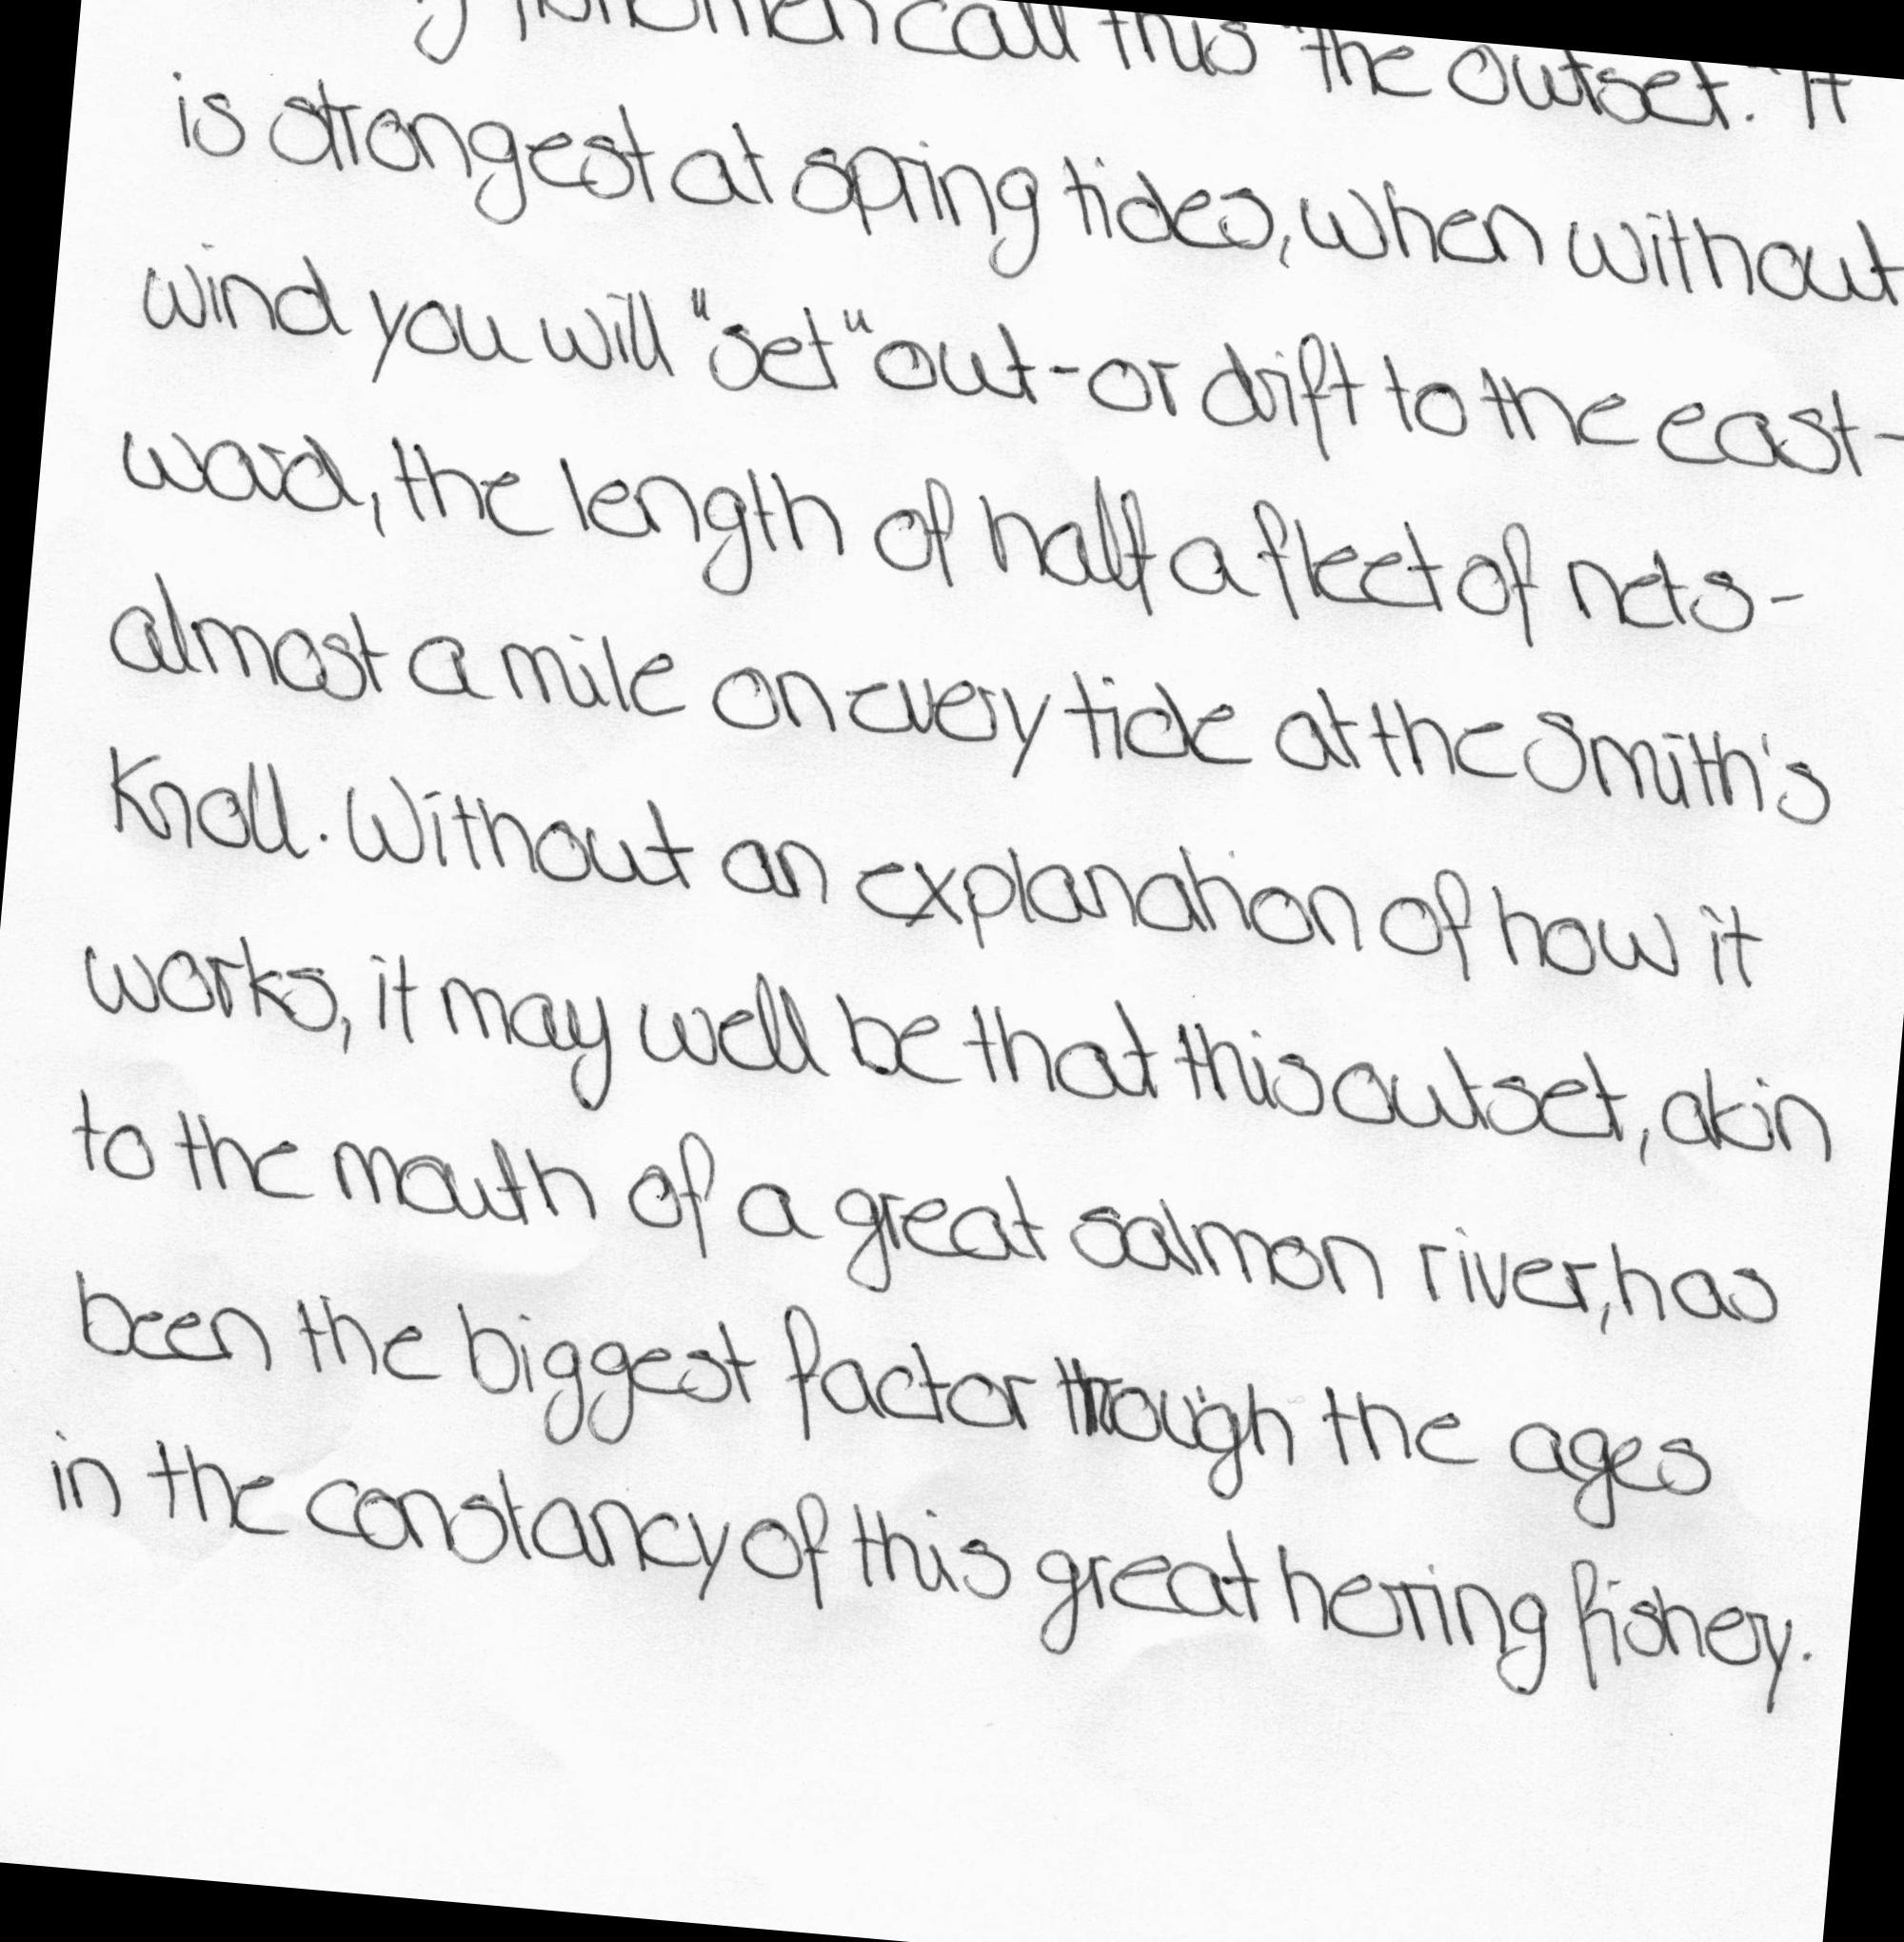 call this "the outset." It
is strongest at spring tides, when without
wind you will "set" out - or drift to the east-
ward, the length of half a fleet of nets -
almost a mile on every tide at the Smith's
Knoll. Without an explanation of how it
works, it may well be that this outset, akin
to the mouth of a great salmon river, has
been the biggest factor through the ages
in the constancy of this great herring fishery.